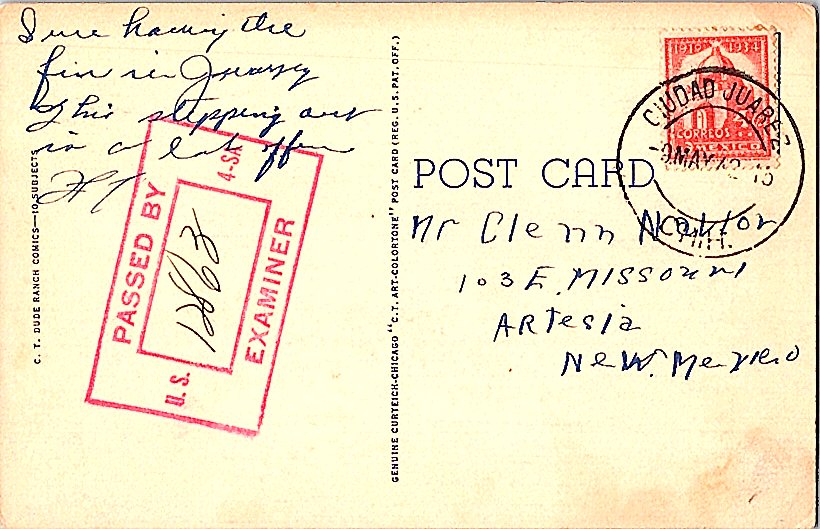 Sure having the
fun in Juarez
This stepping out
is a lot of fun
C. T. DUDE RANCH COMICS—10 SUBJECTS
PASSED BY
U.S. 12863 4-SA
EXAMINER
GENUINE CURTEICH-CHICAGO "C. T. ART-COLORTONE" POST CARD (REG. U. S. PAT. OFF.)
1910 1934
1
CORREOS
MEXICO
CIUDAD JUAREZ
-9MAY 42
CHIH.
POST CARD
Mr Glenn Naylor
103 E. Missouri
Artesia
New. Mexico